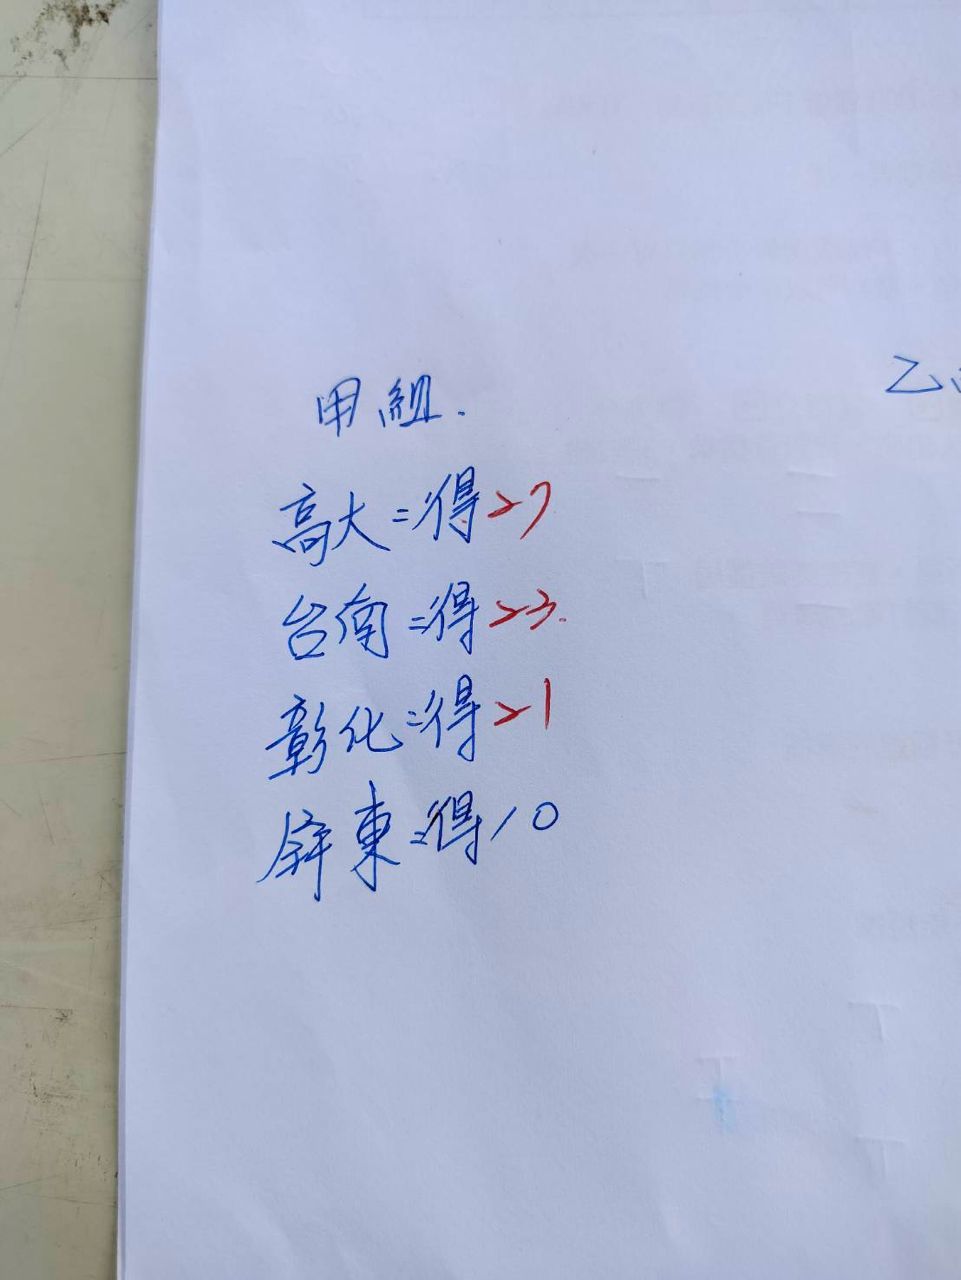 甲組.
乙
高大=得27
台南=得23.
彰化=得21
屏東=得10